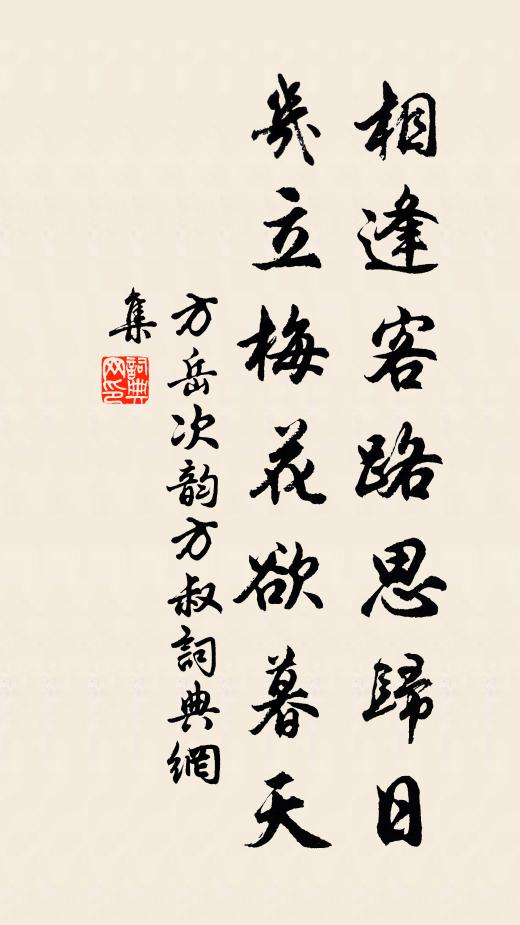 相逢客路思歸日
幾立梅花欲暮天
方岳次韵方叔詞典網
集
詞典
网印